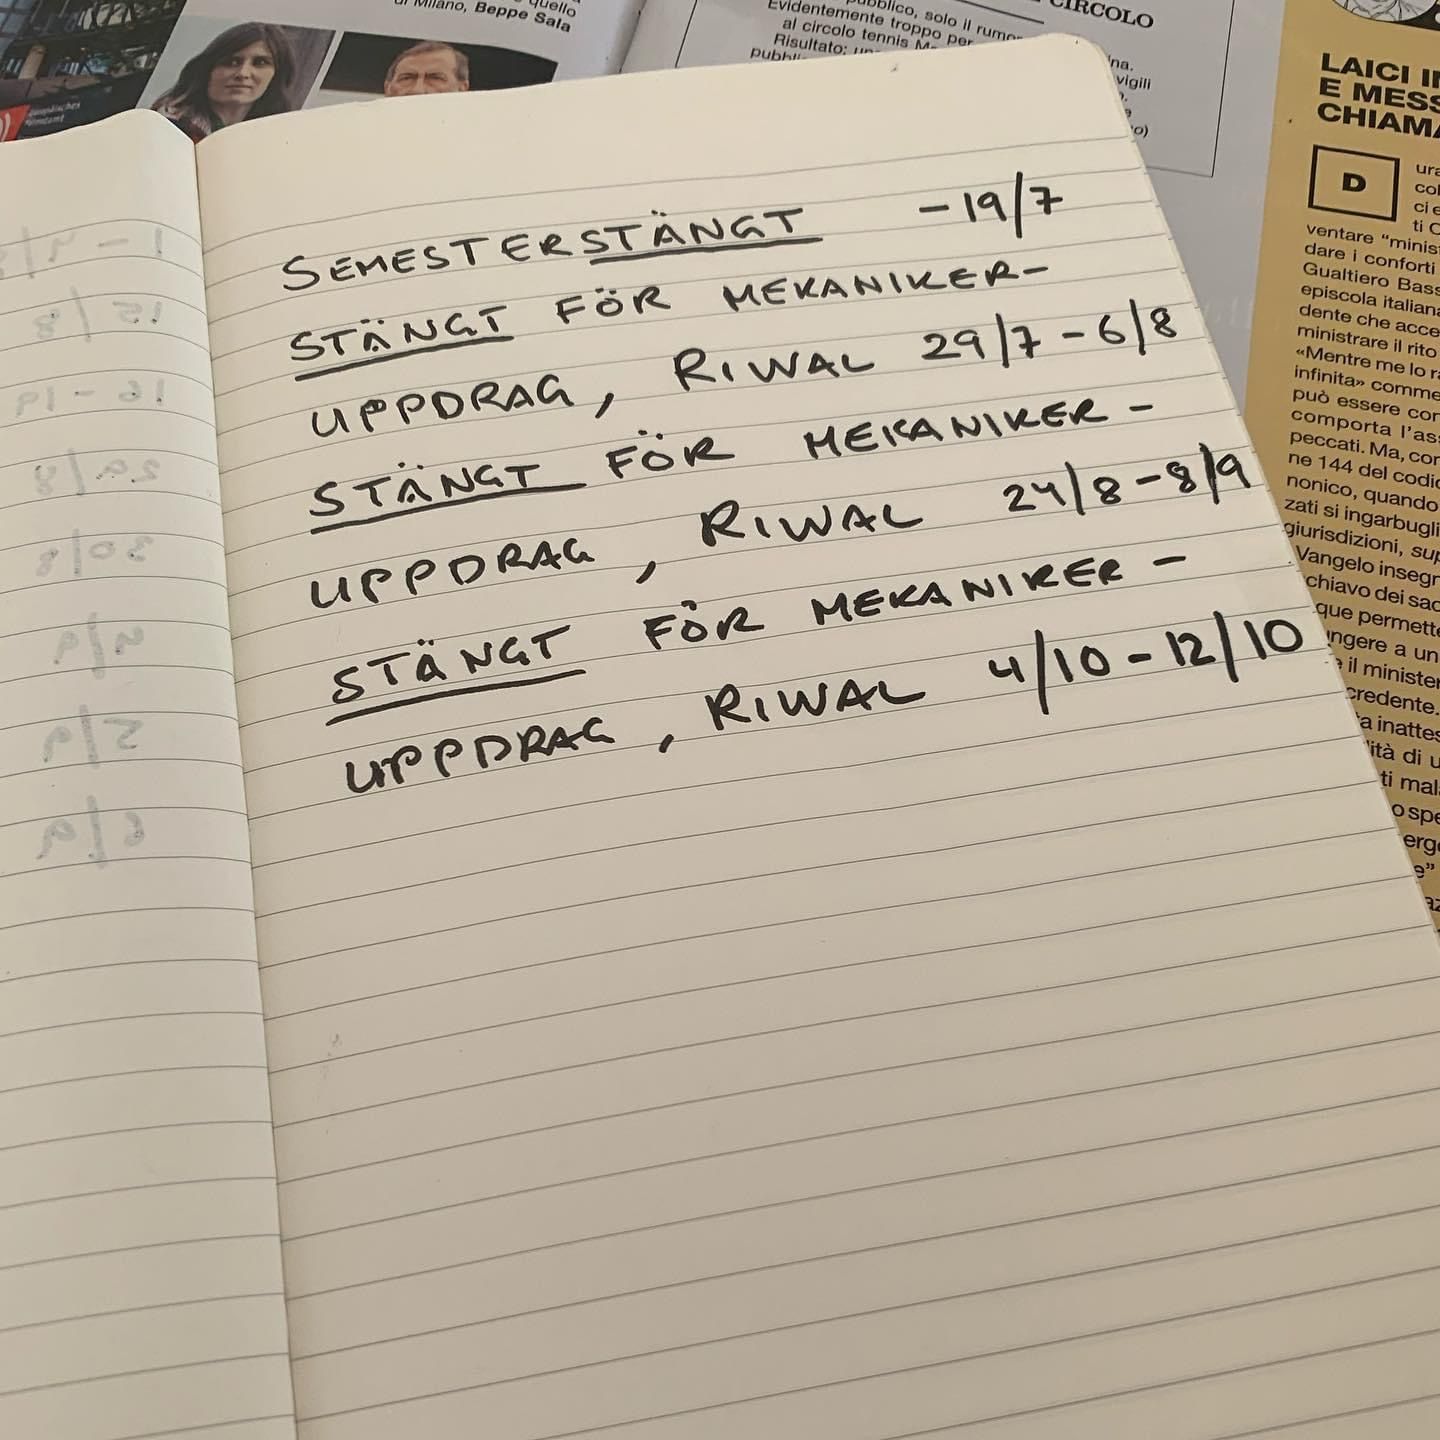 quello
di Milano, Beppe Sala
europäisches
CIRCOLO
pubblico, solo il rumo
Evidentemente troppo per
al circolo tennis
Risultato:
pubbli
na.
vigili
o)
SEMESTERSTÄNGT -19/7
STÄNGT FÖR MEKANIKER-
UPPDRAG, RIWAL 29/7-6/8
STÄNGT FÖR MEKANIKER-
UPPDRAG, RIWAL 24/8-8/9
STÄNGT FÖR MEKANIKER-
UPPDRAG, RIWAL 4/10-12/10
15/8
16-19
29/8
30/8
5/9
6/9
LAICI I
E MESS
CHIAMA
D
ura
col
ci e
ti C
ventare “minist
dare i conforti
Gualtiero Bass
episcola italiana
dente che acce
ministrare il rito
«Mentre me lo ra
infinita» comme
può essere con
comporta l’ass
peccati. Ma, con
ne 144 del codic
nonico, quando
zati si ingarbugli
giurisdizioni, sup
Vangelo insegn
chiavo dei sac
que permette
ngere a un
il minister
credente.
a inattes
ità di u
ti mal
o spe
erg
e”
az